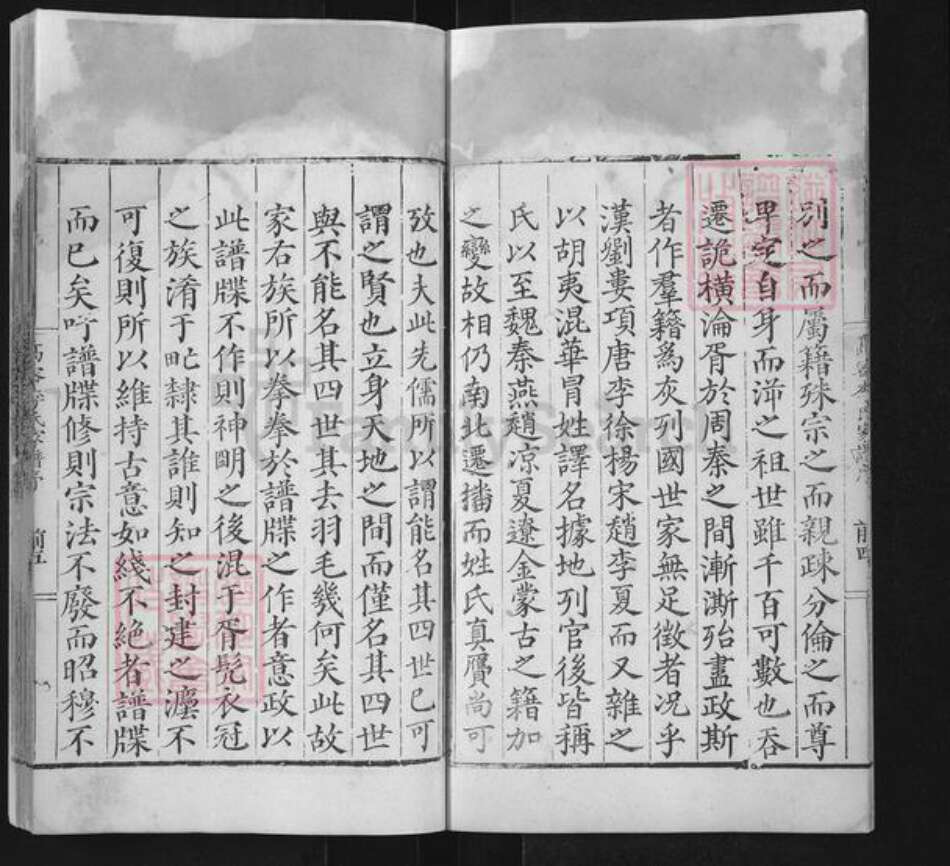 別之而屬籍殊宗之而親疎分倫之而尊
卑定自身而泝之祖世雖千百可數也吞
遷詭橫淪胥於周秦之間漸澌殆盡政斯
者作羣籍爲灰列國世家無足徵者况乎
漢劉婁項唐李徐楊宋趙李夏而又雜之
以胡夷混華冒姓譯名據地列官後皆稱
氏以至魏秦燕趙凉夏遼金蒙古之籍加
之變故相仍南北遷播而姓氏真贋尚可
攷也夫此先儒所以謂能名其四世已可
謂之賢也立身天地之間而僅名其四世
與不能名其四世其去羽毛幾何矣此故
家右族所以拳拳於譜牒之作者意政以
此譜牒不作則神明之後混于胥髡衣冠
之族淆于甿隸其誰則知之封建之㢆不
可復則所以維持古意如綫不絶者譜牒
而已矣吁譜牒修則宗法不廢而昭穆不
前四
前五
FamilySearch